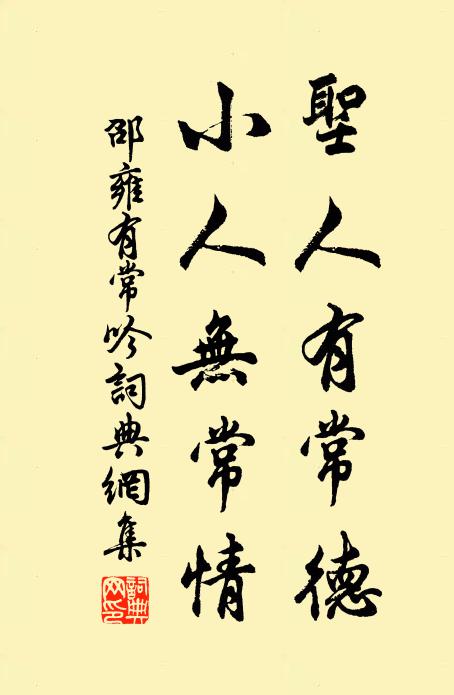 聖人有常德
小人無常情
邵雍有常吟詞典網集
詞典
网印